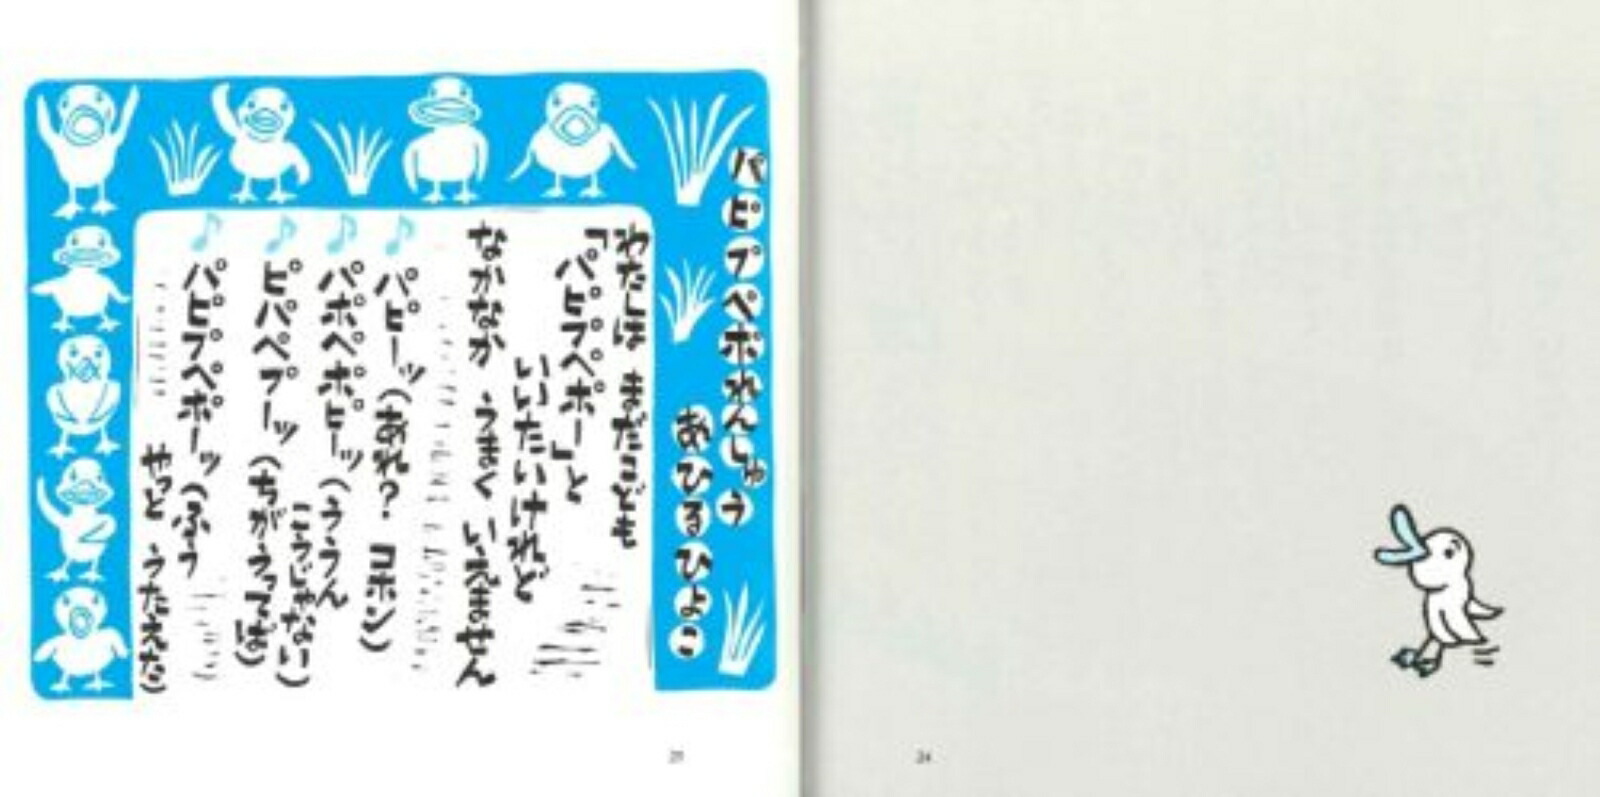 パピプペポれんしゅう
あひるひよこ
わたしは まだこども
「パピプペポー」と
いいたいけれど
なかなか うまく いえません
♪パピーッ(あれ? コホン)
♪パポペポピーッ(ううん
こうじゃない)
♪ピパペプーッ(ちがうってば)
♪パピプペポーッ(ふう
やっと うたえた)
25
24